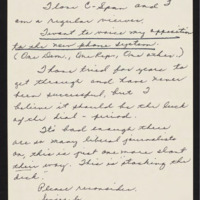 I love C-Span and I
am a regular receiver.
I want to voice my opposition
to the new phone system.
(One Dem, One Rep, One other.)
I have tried for years to
get through and have never
been successful, but I
believe it should be the luck
of the dial - period.
It's bad enough there
are so many liberal journalists
on, this is just one more
their way. This is stacking the
deck.
Please reconsider.